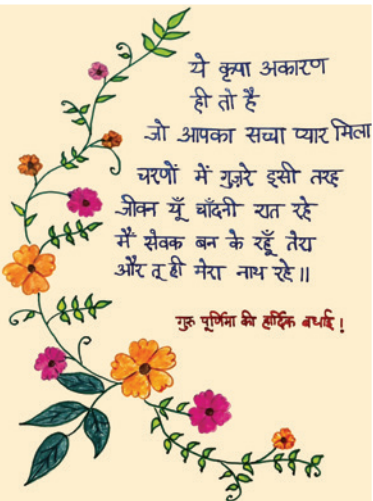 ये कृपा अकारण
ही तो है
जो आपका सच्चा प्यार मिला
चरणों में गुज़रे इसी तरह
जीवन यूँ चाँदनी रात रहे
मैं सेवक बन के रहूँ तेरा
और तू ही मेरा नाथ रहे॥
गुरु पूर्णिमा की हार्दिक बधाई!